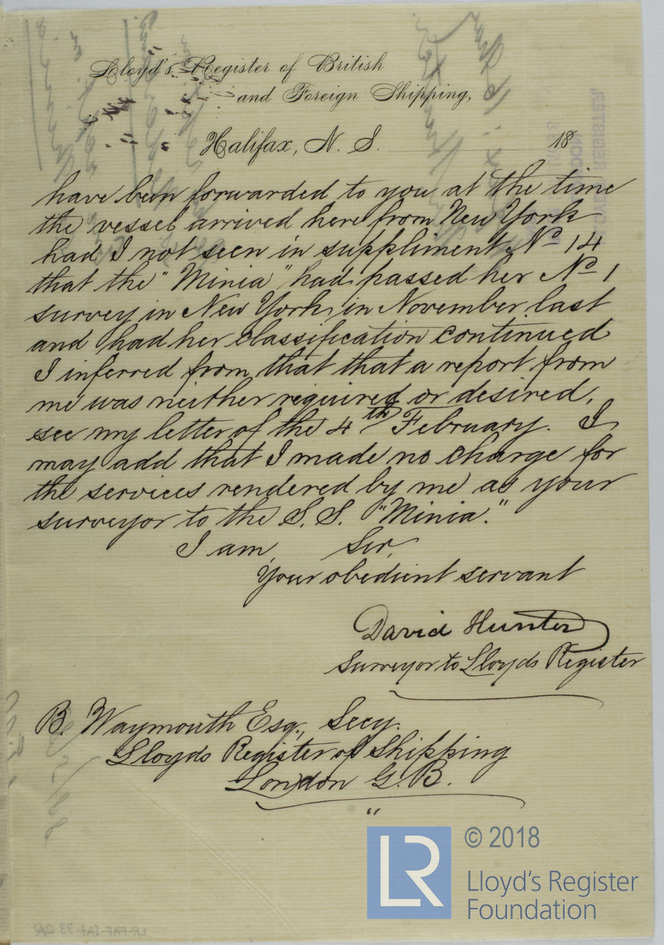 Lloyd's Register of British
and Foreign Shipping,
Halifax, N. S. 18
have been forwarded to you at the time
the vessel arrived here from New York
had I not seen in suppliment No 14
that the "Minia" had passed her No 1
survey in New York, in November last
and had her classification continued
I inferred from that that a report from
me was neither required or desired,
see my letter of the 4th February. I
may add that I made no charge for
the services rendered by me as your
surveyor to the S. S. "Minia."
I am Sir,
Your obedient servant
David Hunter
Surveyor to Lloyds Register
B. Waymouth Esq., Secy.
Lloyds Register of Shipping
London G. B.
LR
© 2018
Lloyd's Register
Foundation